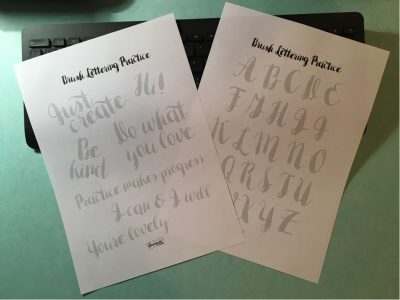 Brush Lettering Practice
Just create
Hi!
Be kind
Do what you love
Practice makes progress
I can & I will
You're lovely
Brush Lettering Practice
A B C D E
F G H I J
K L M N O
P Q R S T U
V W X Y Z